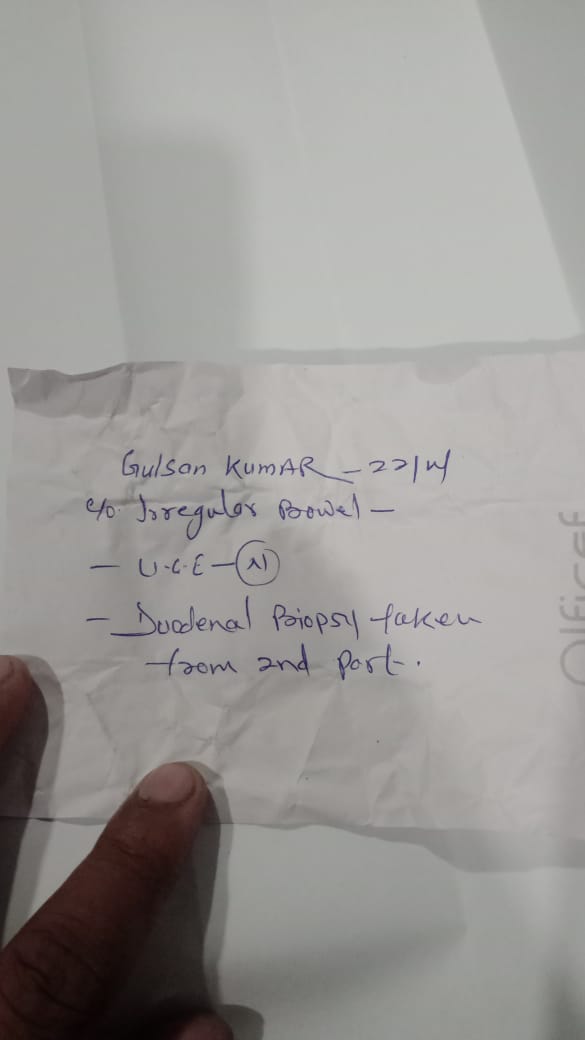 Gulsan KUMAR - 22/M
c/o. Irregular Bowel -
- U.G.E - (N)
- Duodenal Biopsy taken
from 2nd Part.